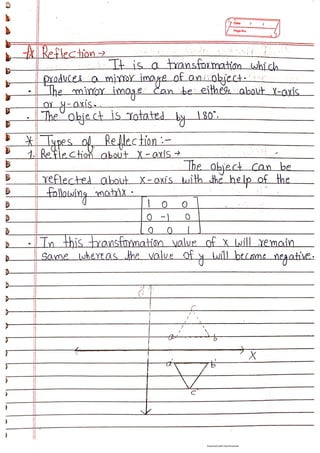 Date
Page No.
* Reflection →
It is a transformation which
produces a mirror image of an object.
• The mirror image can be either about x-axis
or y-axis.
• The object is rotated by 180°.
* Types of Reflection :-
1. Reflection about X-axis →
The object can be
reflected about x-axis with the help of the
following matrix.
1 0 0
0 -1 0
0 0 1
• In this transformation value of x will remain
same whereas the value of y will become negative.
y
c
a b
X
a' b'
c'